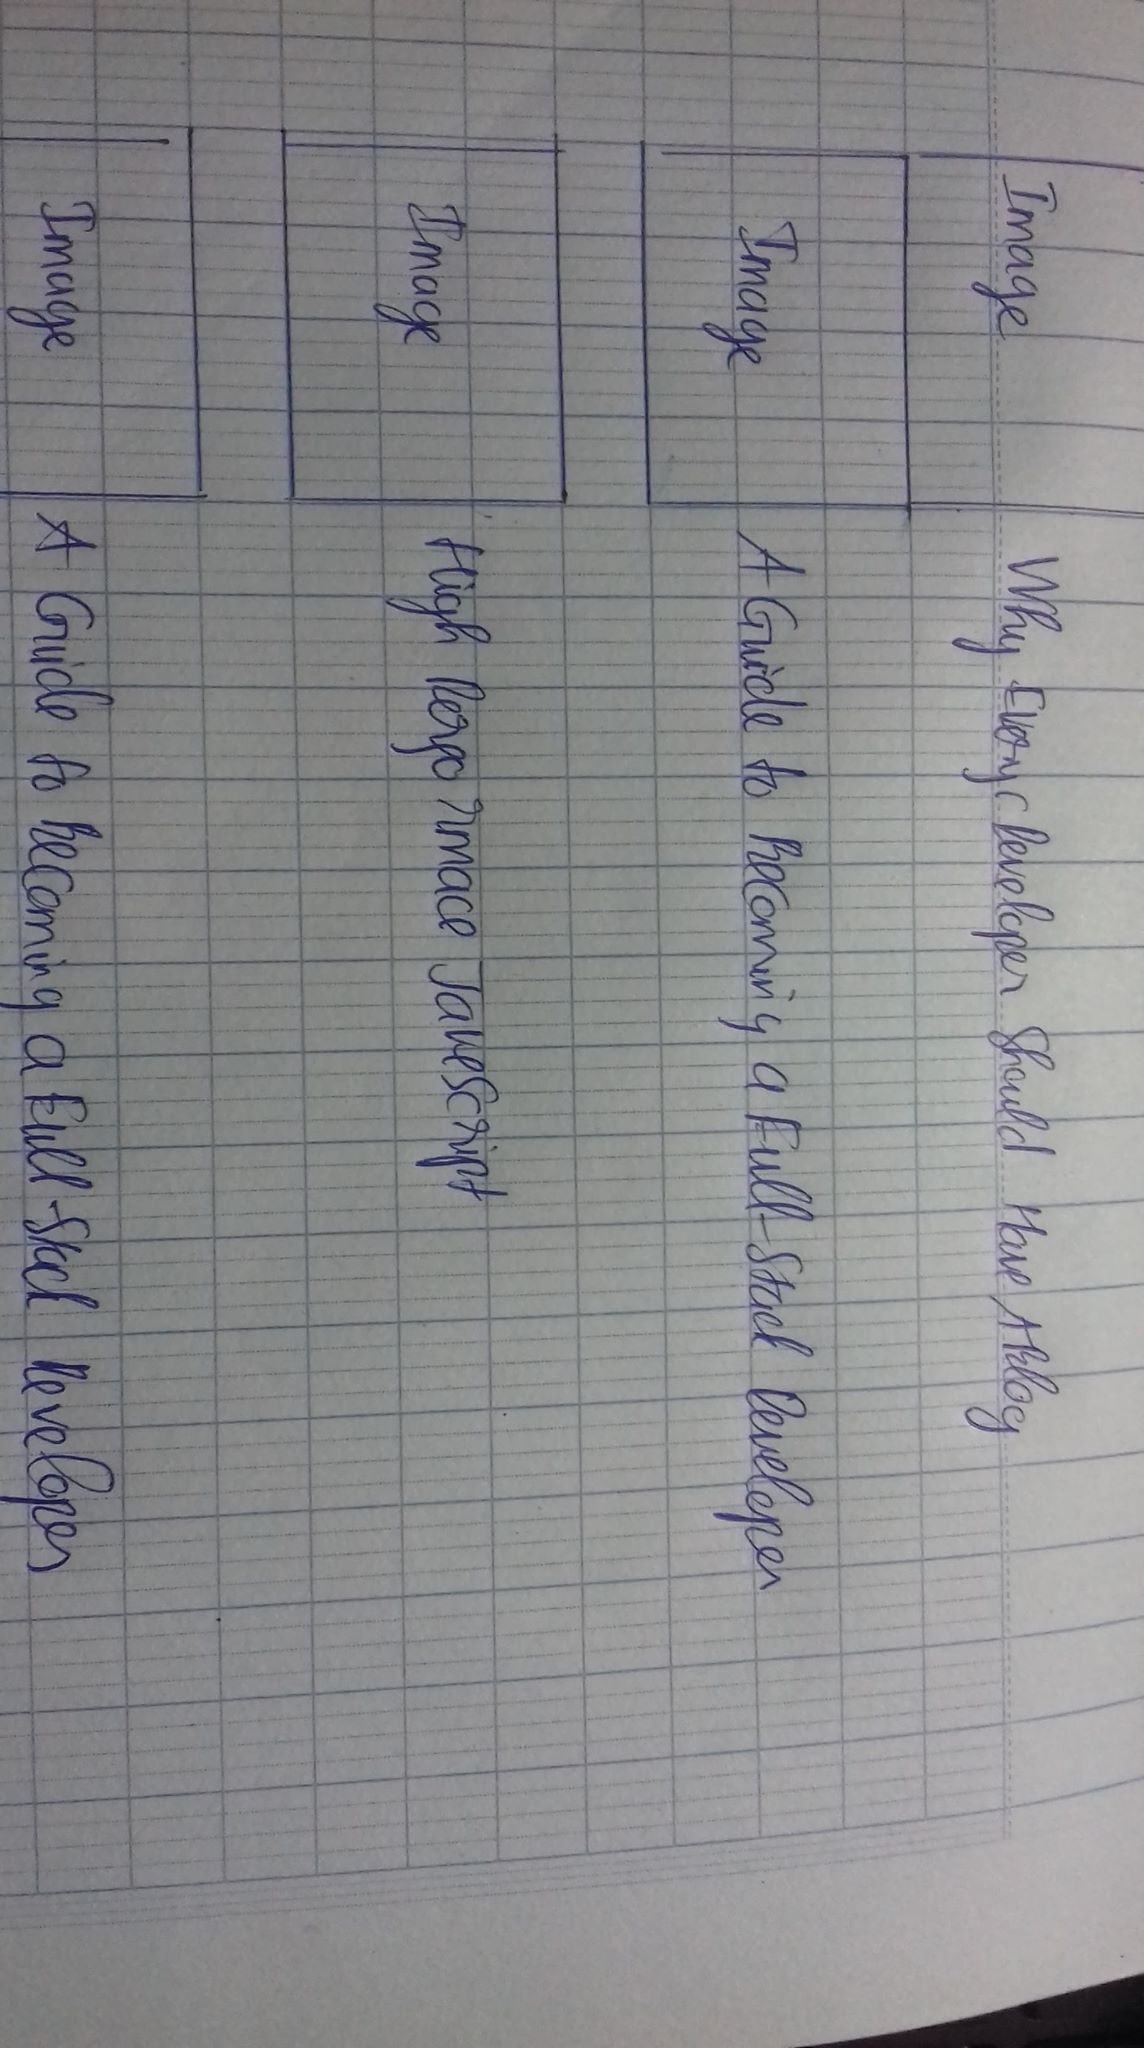 Image Why Every Developer Should Have A Blog
Image A Guide to Becoming a Full-Stack Developer
Image High Performace JavaScript
Image A Guide to Becoming a Full-Stack Developer